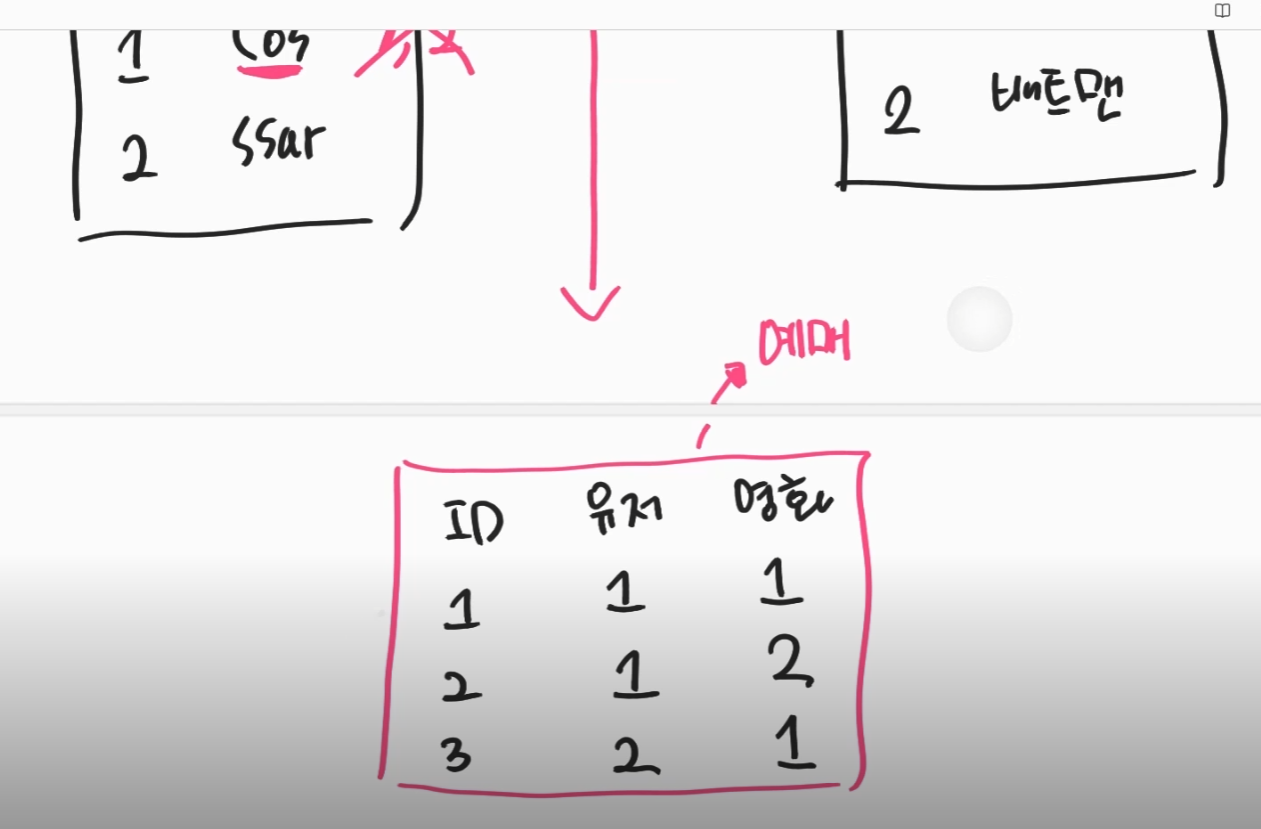 1 Cos
2 ssar
2 배트맨
예매
ID 유저 영화
1 1 1
2 1 2
3 2 1